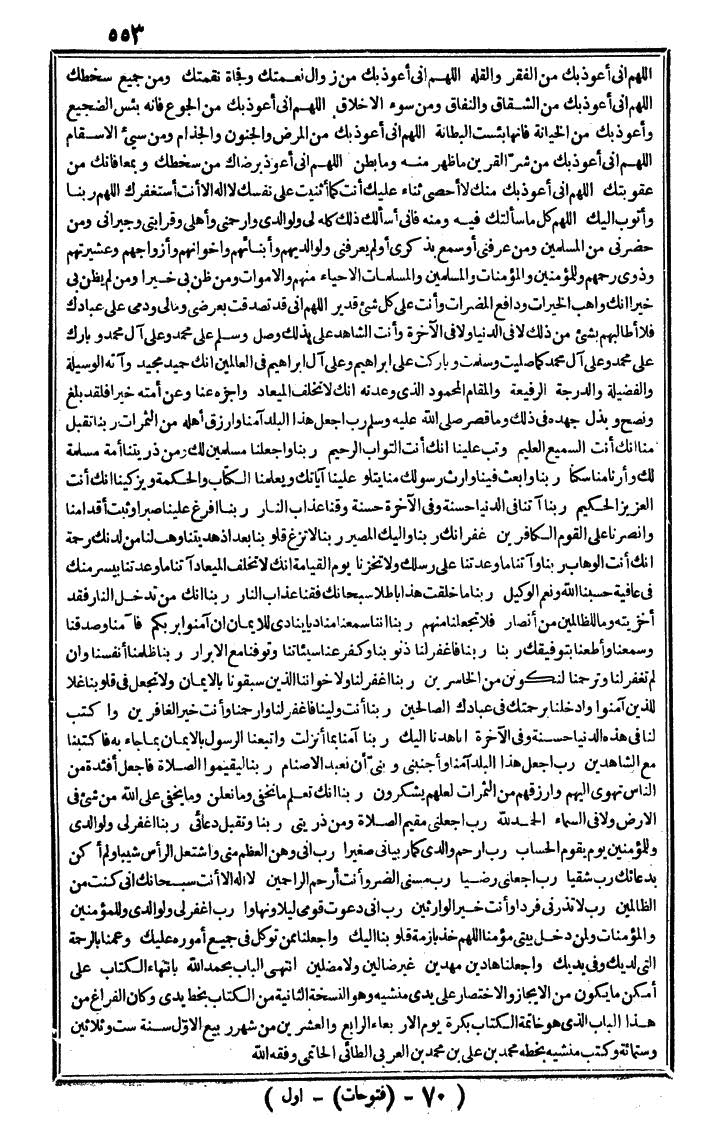 ٥٥٣
اللهم انى أعوذ بك من الفقر والقله اللهم انى أعوذ بك من زوال نعمتك وفجاة نقمتك ومن جميع سخطك
اللهم انى أعوذ بك من الشقاق والنفاق ومن سوء الاخلاق اللهم انى أعوذ بك من الجوع فانه بئس الضجيع
وأعوذ بك من الخيانة فانها بئست البطانة اللهم انى أعوذ بك من المرض والجنون والجذام ومن سيئ الاسقام
اللهم انى أعوذ بك من شر القرين ما ظهر منه وما بطن اللهم انى أعوذ برضاك من سخطك وبمعافاتك من
عقوبتك اللهم انى أعوذ بك منك لا أحصى ثناء عليك أنت كما أثنيت على نفسك لا اله الا أنت أستغفرك اللهم ربنا
وأتوب اليك اللهم كل ما سألتك فيه ومنه فانى أسألك ذلك كله لى ولوالدى وارحمنى وأهلى وقرابتى وجيرانى ومن
حضرنى من المسلمين ومن عرفنى أو سمع بذكرى أو لم يعرفنى ولوالديهم وأبنائهم واخوانهم وأزواجهم وعشيرتهم
وذوى رحمهم وللمؤمنين والمؤمنات والمسلمين والمسلمات الاحياء منهم والاموات ومن ظن فى خيرا ومن لم يظن بى
خيرا انك واهب الخيرات ودافع المضرات وأنت على كل شئ قدير اللهم انى قد تصدقت بعرضى ومالى ودمى على عبادك
فلا أطالبهم بشئ من ذلك لا فى الدنيا ولا فى الآخرة وأنت الشاهد على بذلك وصل وسلم على محمد وعلى آل محمد وبارك
على محمد وعلى آل محمد كما صليت وسلمت وباركت على ابراهيم وعلى آل ابراهيم فى العالمين انك حميد مجيد وآته الوسيلة
والفضيلة والدرجة الرفيعة والمقام المحمود الذى وعدته انك لا تخلف الميعاد واجزه عنا وعن أمته خيرا فلقد بلغ
ونصح وبذل جهده فى ذلك وما قصر صلى الله عليه وسلم رب اجعل هذا البلد آمنا وارزق أهله من الثمرات ربنا تقبل
منا انك أنت السميع العليم وتب علينا انك أنت التواب الرحيم ربنا واجعلنا مسلمين لك ومن ذريتنا أمة مسلمة
لك وأرنا مناسكنا ربنا وابعث فينا وارث رسولك منا يتلو علينا آياتك ويعلمنا الكتاب والحكمة ويزكينا انك أنت
العزيز الحكيم ربنا آتنا فى الدنيا حسنة وفى الآخرة حسنة وقنا عذاب النار ربنا افرغ علينا صبرا وثبت أقدامنا
وانصرنا على القوم الكافرين غفرانك ربنا واليك المصير ربنا لا تزغ قلوبنا بعد اذ هديتنا وهب لنا من لدنك رحمة
انك أنت الوهاب ربنا وآتنا ما وعدتنا على رسلك ولا تخزنا يوم القيامة انك لا تخلف الميعاد آتنا ما وعدتنا بيسر منك
فى عافية حسبنا الله ونعم الوكيل ربنا ما خلقت هذا باطلا سبحانك فقنا عذاب النار ربنا انك من تدخل النار فقد
أخزيته وما للظالمين من أنصار فلا تجعلنا منهم ربنا اننا سمعنا مناديا ينادى للايمان ان آمنوا بربكم فآمنا وصدقنا
وسمعنا وأطعنا بتوفيقك ربنا ربنا فاغفر لنا ذنوبنا وكفر عنا سيئاتنا وتوفنا مع الابرار ربنا ظلمنا أنفسنا وان
لم تغفر لنا وترحمنا لنكونن من الخاسرين ربنا اغفر لنا ولاخواننا الذين سبقونا بالايمان ولا تجعل فى قلوبنا غلا
للذين آمنوا وادخلنا برحمتك فى عبادك الصالحين ربنا أنت ولينا فاغفر لنا وارحمنا وأنت خير الغافرين واكتب
لنا فى هذه الدنيا حسنة وفى الآخرة انا هدنا اليك ربنا آمنا بما أنزلت واتبعنا الرسول بالايمان بما جاء به فاكتبنا
مع الشاهدين رب اجعل هذا البلد آمنا وأجنبنى وبنىّ أن نعبد الاصنام ربنا ليقيموا الصلاة فاجعل أفئدة من
الناس تهوى اليهم وارزقهم من الثمرات لعلهم يشكرون ربنا انك تعلم ما نخفى وما نعلن وما يخفى على الله من شئ فى
الارض ولا فى السماء الحمد لله رب اجعلنى مقيم الصلاة ومن ذريتى ربنا وتقبل دعائى ربنا اغفر لى ولوالدى
وللمؤمنين يوم يقوم الحساب رب ارحم والدى كما ربيانى صغيرا رب انى وهن العظم منى واشتعل الرأس شيبا ولم أكن
بدعائك رب شقيا رب اجعلنى رضيا رب مسنى الضر وأنت أرحم الراحمين لا اله الا أنت سبحانك انى كنت من
الظالمين رب لا تذرنى فردا وأنت خير الوارثين رب انى دعوت قومى ليلا ونهارا رب اغفر لى ولوالدى وللمؤمنين
والمؤمنات ولمن دخل بيتى مؤمنا اللهم خذ بازمة قلوبنا اليك واجعلنا ممن توكل فى جميع أموره عليك وعمنا بالرحمة
التى لديك وفى يديك واجعلنا هادين مهدين غير ضالين ولا مضلين انتهى الباب بحمد الله بانتهاء الكتاب على
أمكن ما يكون من الايجاز والاختصار على يدى منشيه وهو النسخة الثانية من الكتاب بخط يدى وكان الفراغ من
هذا الباب الذى هو خاتمة الكتاب بكرة يوم الاربعاء الرابع والعشرين من شهر ربيع الاول سنة ست وثلاثين
وستمائة وكتب منشيه بخطه محمد بن على بن محمد بن العربى الطائى الحاتمى وفقه الله
( ٧٠ - (فتوحات) - اول )